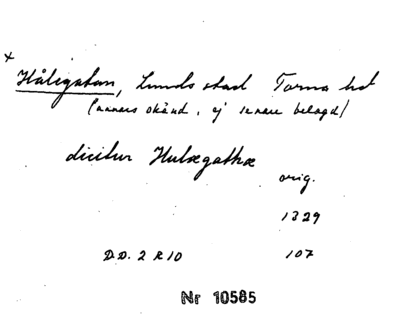 x
Hålegatan, Lunds stad Torna hd
(annars okänd, ej senare belagd)
dicitur Hulægathæ
orig.
1329
D.D. 2 R 10 107
Nr 10585